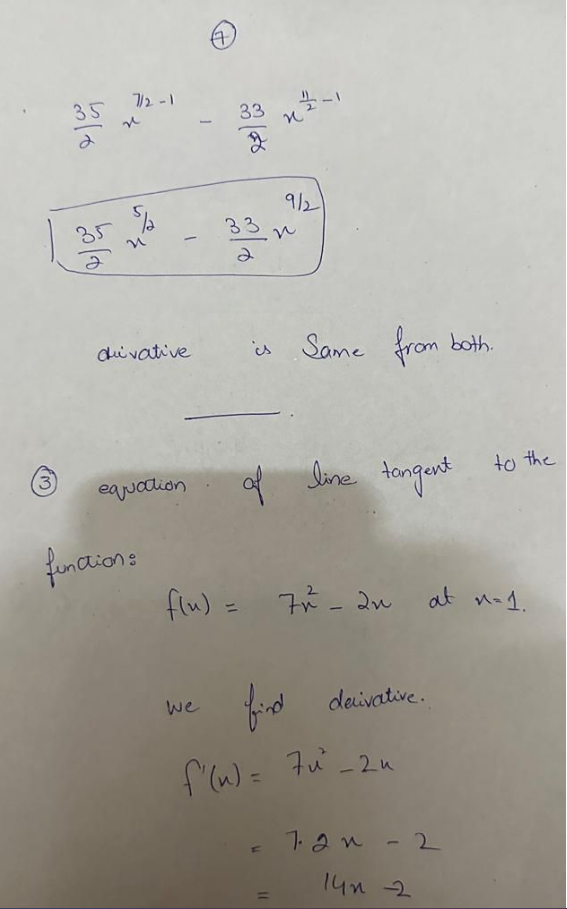 7
35/2 x^(7/2 - 1) - 33/2 x^(11/2 - 1)
35/2 x^(5/2) - 33/2 x^(9/2)
derivative is Same from both.
3 equation of line tangent to the
function:
f(x) = 7x² - 2x at x=1.
we find derivative.
f'(x) = 7x² - 2x
= 7.2x - 2
= 14x - 2